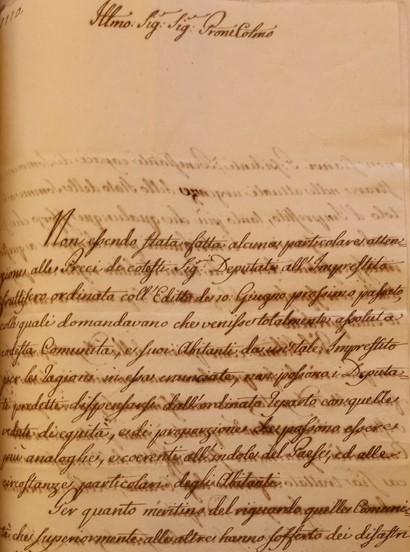 Illmo: Sig:r Sig:r Prone Colmo
Non essendo stata fatta alcuna particolare atten-
zione alle Preci di cotesti Sig:ri Deputati all'Imprestito
fruttifero ordinato coll'Editto de 10: Giugno prossimo passato,
colle quali domandavano che venisse totalmente assoluta
codesta Comunità, e suoi Abitanti da un tale Imprestito
per le ragioni in esse enunciate, non possono i Deputa-
ti predetti dispensarsi dall'ordinato reparto con quelle
vedute di equità, e di proporzione che possono essere
più analoghe, e coerenti all'indole del Paese, ed alle
circostanze particolari degli Abitanti.
Per quanto meritino del riguardo quelle Comuni-
tà che superiormente alle altre hanno sofferto dei disastri